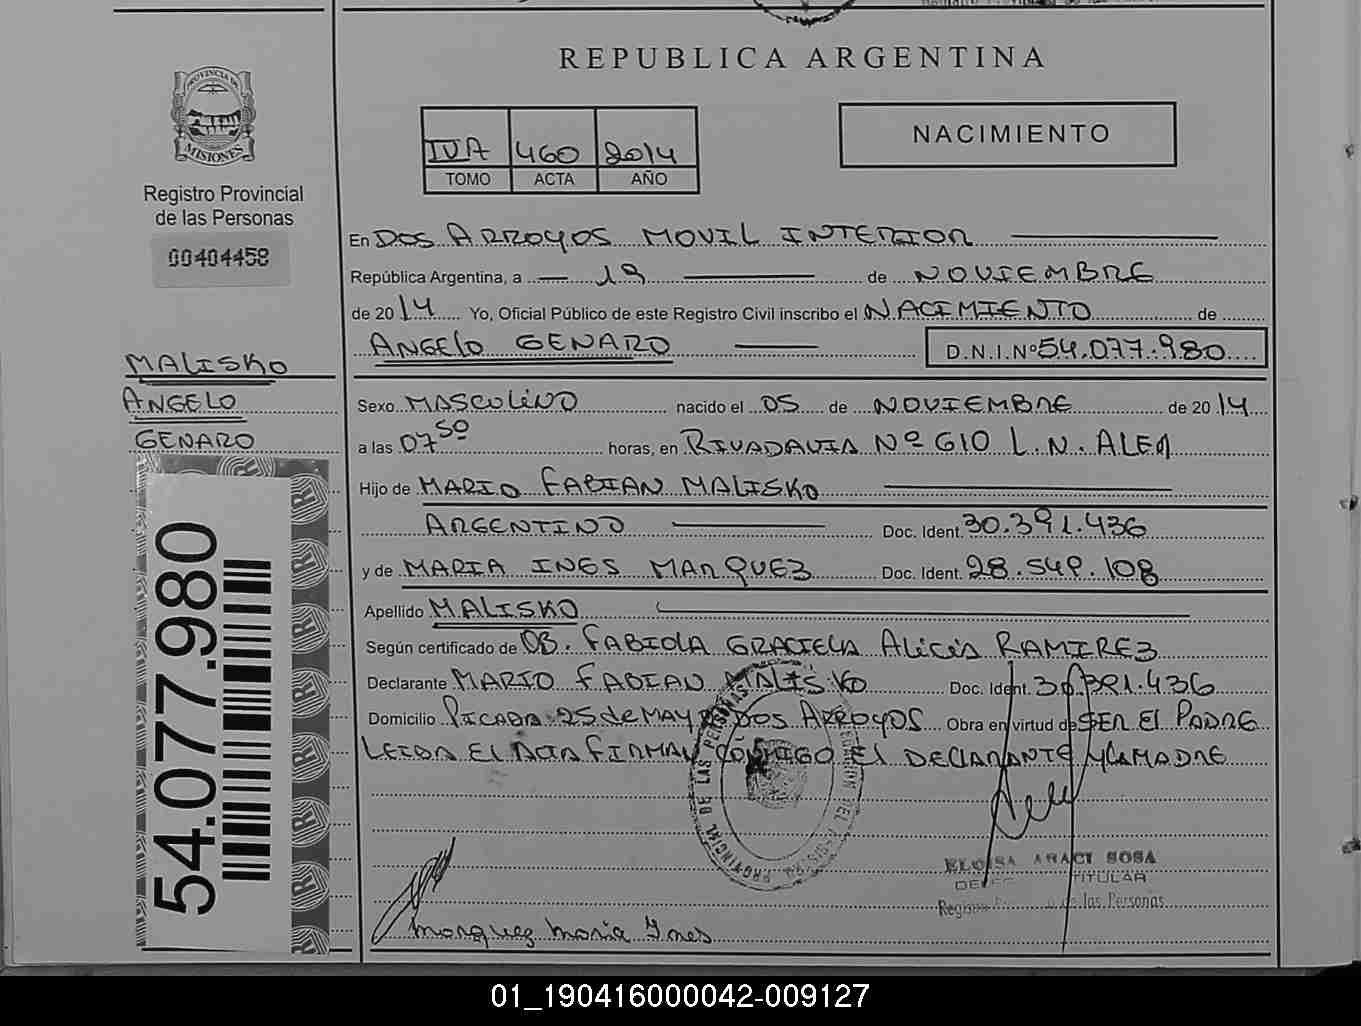 REPUBLICA ARGENTINA
PROVINCIA DE
MISIONES
Registro Provincial
de las Personas
00404458
IVA 460 2014
TOMO ACTA AÑO
NACIMIENTO
En DOS ARROYOS MOVIL INTERIOR
República Argentina, a 19 de NOVIEMBRE
de 2014 Yo, Oficial Público de este Registro Civil inscribo el NACIMIENTO de
ANGELO GENARO D.N.I.Nº 54.077.980
MALISKO
ANGELO
GENARO
Sexo MASCULINO nacido el 05 de NOVIEMBRE de 2014
a las 07 50 horas, en RIVADAVIA Nº 610 L.N. ALEM
Hijo de MARIO FABIAN MALISKO
ARGENTINO Doc. Ident. 30.391.436
y de MARIA INES MARQUEZ Doc. Ident. 28.549.108
Apellido MALISKO
Según certificado de OB. FABIOLA GRACIELA ALICIA RAMIREZ
Declarante MARIO FABIAN MALISKO Doc. Ident. 30.391.436
Domicilio PICADA 25 de MAYO DOS ARROYOS Obra en virtud de SER EL PADRE
LEIDA EL ACTA FIRMAN CONMIGO EL DECLARANTE Y LA MADRE
54.077.980
PROVINCIAL DE LAS PERSONAS
ELOISA ARACI SOSA
TITULAR
de las Personas
Marquez Maria Ines
01_190416000042-009127